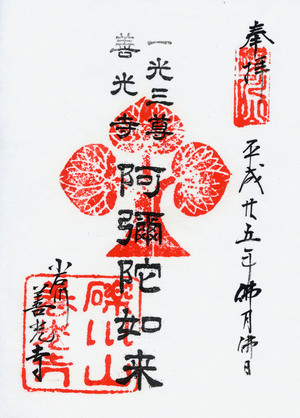 奉拝
平成廿五年佛月佛日
一光三尊
善光寺
阿彌陀如来
小石川
善光寺
礫川山